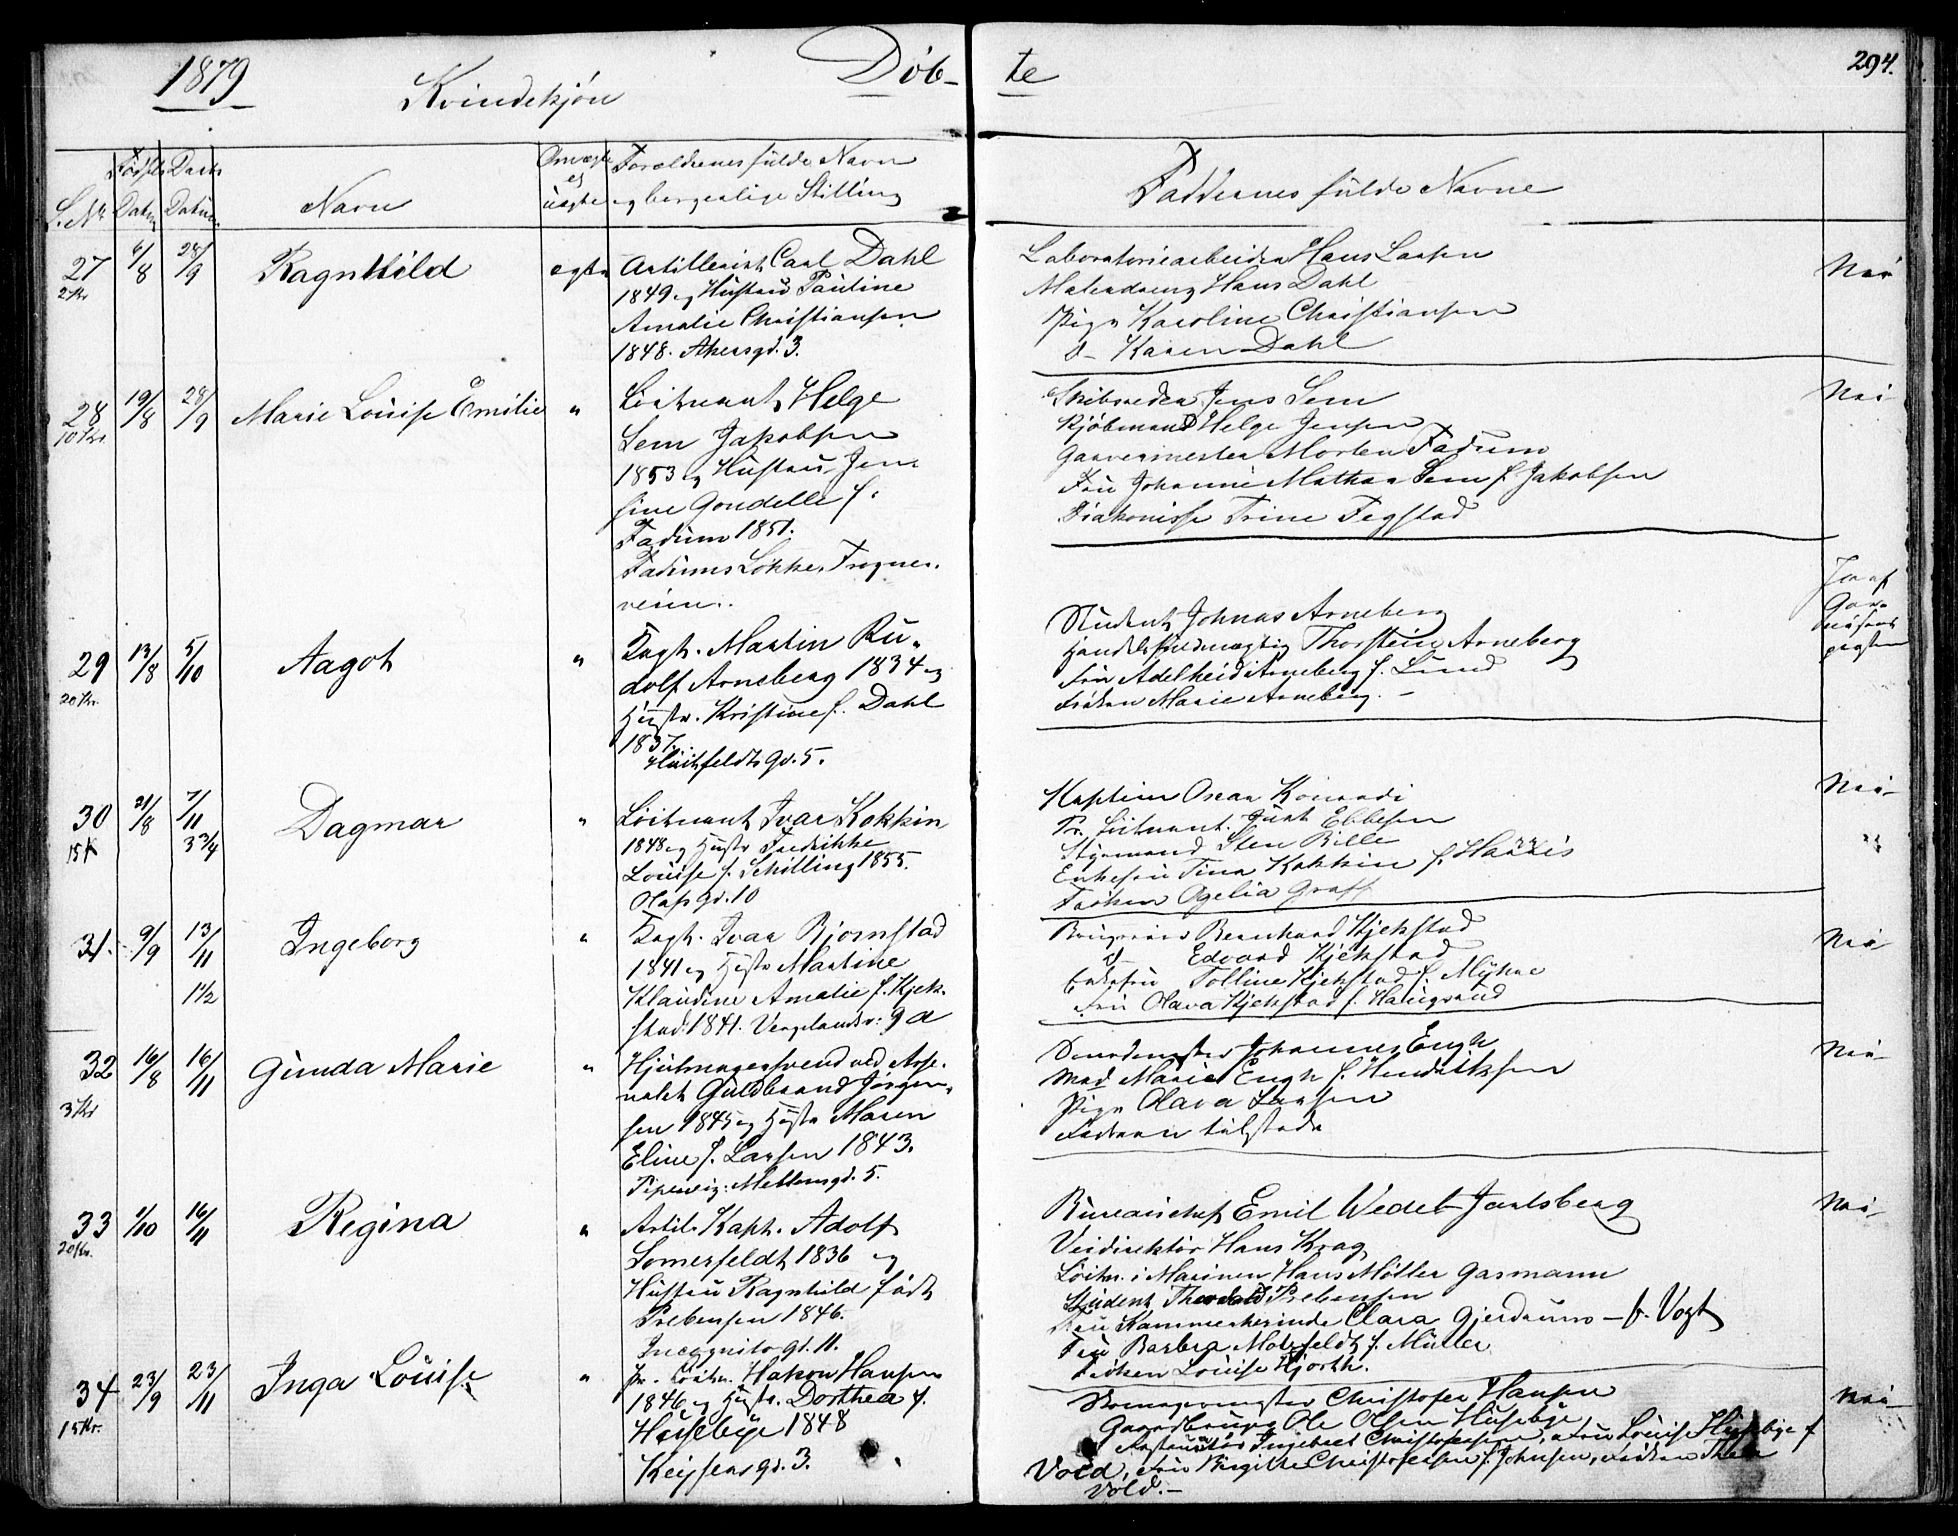 1879
Kvindekjön
Döb-
te
294.
L. Nr
Födsels Datum
Daabs Datum
Navn
Om ægte el uægte
Foreldrenes fulde Navn
og borgerlige Stilling
Faddernes fulde Navne
27 6/8 28/9 Ragnhild ægte
2 Kr
Artillerist Carl Dahl
1849 og Hustru Pauline
Amalie Christiansen
1848. Akersgd. 3.
Laboratoriearbeider Hans Larsen
Malerdreng Hans Dahl
Pige Karoline Christiansen
d- Karen Dahl
Nei
28 19/8 28/9 Marie Louise Emilie "
10 Kr.
Löitnant Helge
Sem Jakobsen
1853 og Hustru Jen-
sine Gondelle f.
Fadum 1851.
Fadums Lökke, Frogner-
veien.
Skibsreder Jens Sem
Kjöbmand Helge Jensen
Garvermester Morten Fadum
Fru Johanne Mathea Sem f. Jakobsen
Diakonisse Trine Fegstad
Nei
29 13/8 5/10 Aagot "
20 Kr.
Kapt. Martin Ru-
dolf Arneberg 1834 og
Hustr. Kristine f. Dahl
1837.
Huitfeldts gd. 5.
Student Johnas Arneberg
Handelsfuldmægtig Thorstein Arneberg
Fru Adelheid Arneberg f. Lund
Fröken Marie Arneberg. -
Ja af
Gar-
nisons
presten
30 21/8 7/11 Dagmar "
15 K 3 3/4
Löitnant Ivar Kokkin
1848 og Hustr Fredrikke
Louise f. Schilling 1855.
Olafs gd. 10
Kaptein Oscar Konradi
Pr. Löitnant. Just Ebbesen
Styrmand Sten Bille
Enkefru Tina Kokkin f. Harris
Fröken Ogelia Graff
Nei
"
31. 9/9 13/11 Ingeborg "
1 1/2
Kapt. Ivar Bjornstad
1841 og Hustr Martine
Klaudine Amalie f. Kjek-
stad 1841. Vergelandsv: 9 a
Brugseier Bernhard Kjekstad
d- Edvard Kjekstad
Enkefru Tolline Kjekstad f. Myhre
Fru Olava Kjekstad f. Haugerud
Nei
32 16/8 16/11 Gunda Marie "
3 Kr
Hjulmagersvend ved Arse-
nalet Guldbrand Jörgen-
sen 1845 og Hustr Maren
Eline f. Larsen 1843.
Pipervig: Mellemgd. 5.
Smedmester Johannes Engh
Mad Marie Engh f. Hendriksen
Pige Olava Larsen
Faderen tilstede
Nei
33 1/10 16/11 Regina "
20 Kr.
Artil. Kapt. Adolf
Somerfeldt 1836 og
Hustru Ragnhild född
Prebensen 1846.
Incognito gd. 11.
Bureauchef Emil Wedel Jarlsberg
Veidirektör Hans Krag
Löitn. i Marinen Hans Möller Gasmann
Student Thorvald Prebensen
Fru Kammerherinde Clara Gjerdrum - f. Vogt
Fru Barbra Motzfeldt f. Müller
Fröken Louise Hjorth.
Nei
34 23/9 23/11 Inga Louise "
15 Kr.
Pr. Löitn. Hakon Hansen
1846 og Hustr. Dorthea f.
Huseby 1848
Keysers gd. 3.
Skomagermester Christofer Hansen
Gaardbruger Ole Olsen Huseby
Ingebret Christofersen, Fru Louise Huseby f
Vold, Fru Birgitte Christofersen f. Johnsen, Fröken Thea
Vold. -
Nei